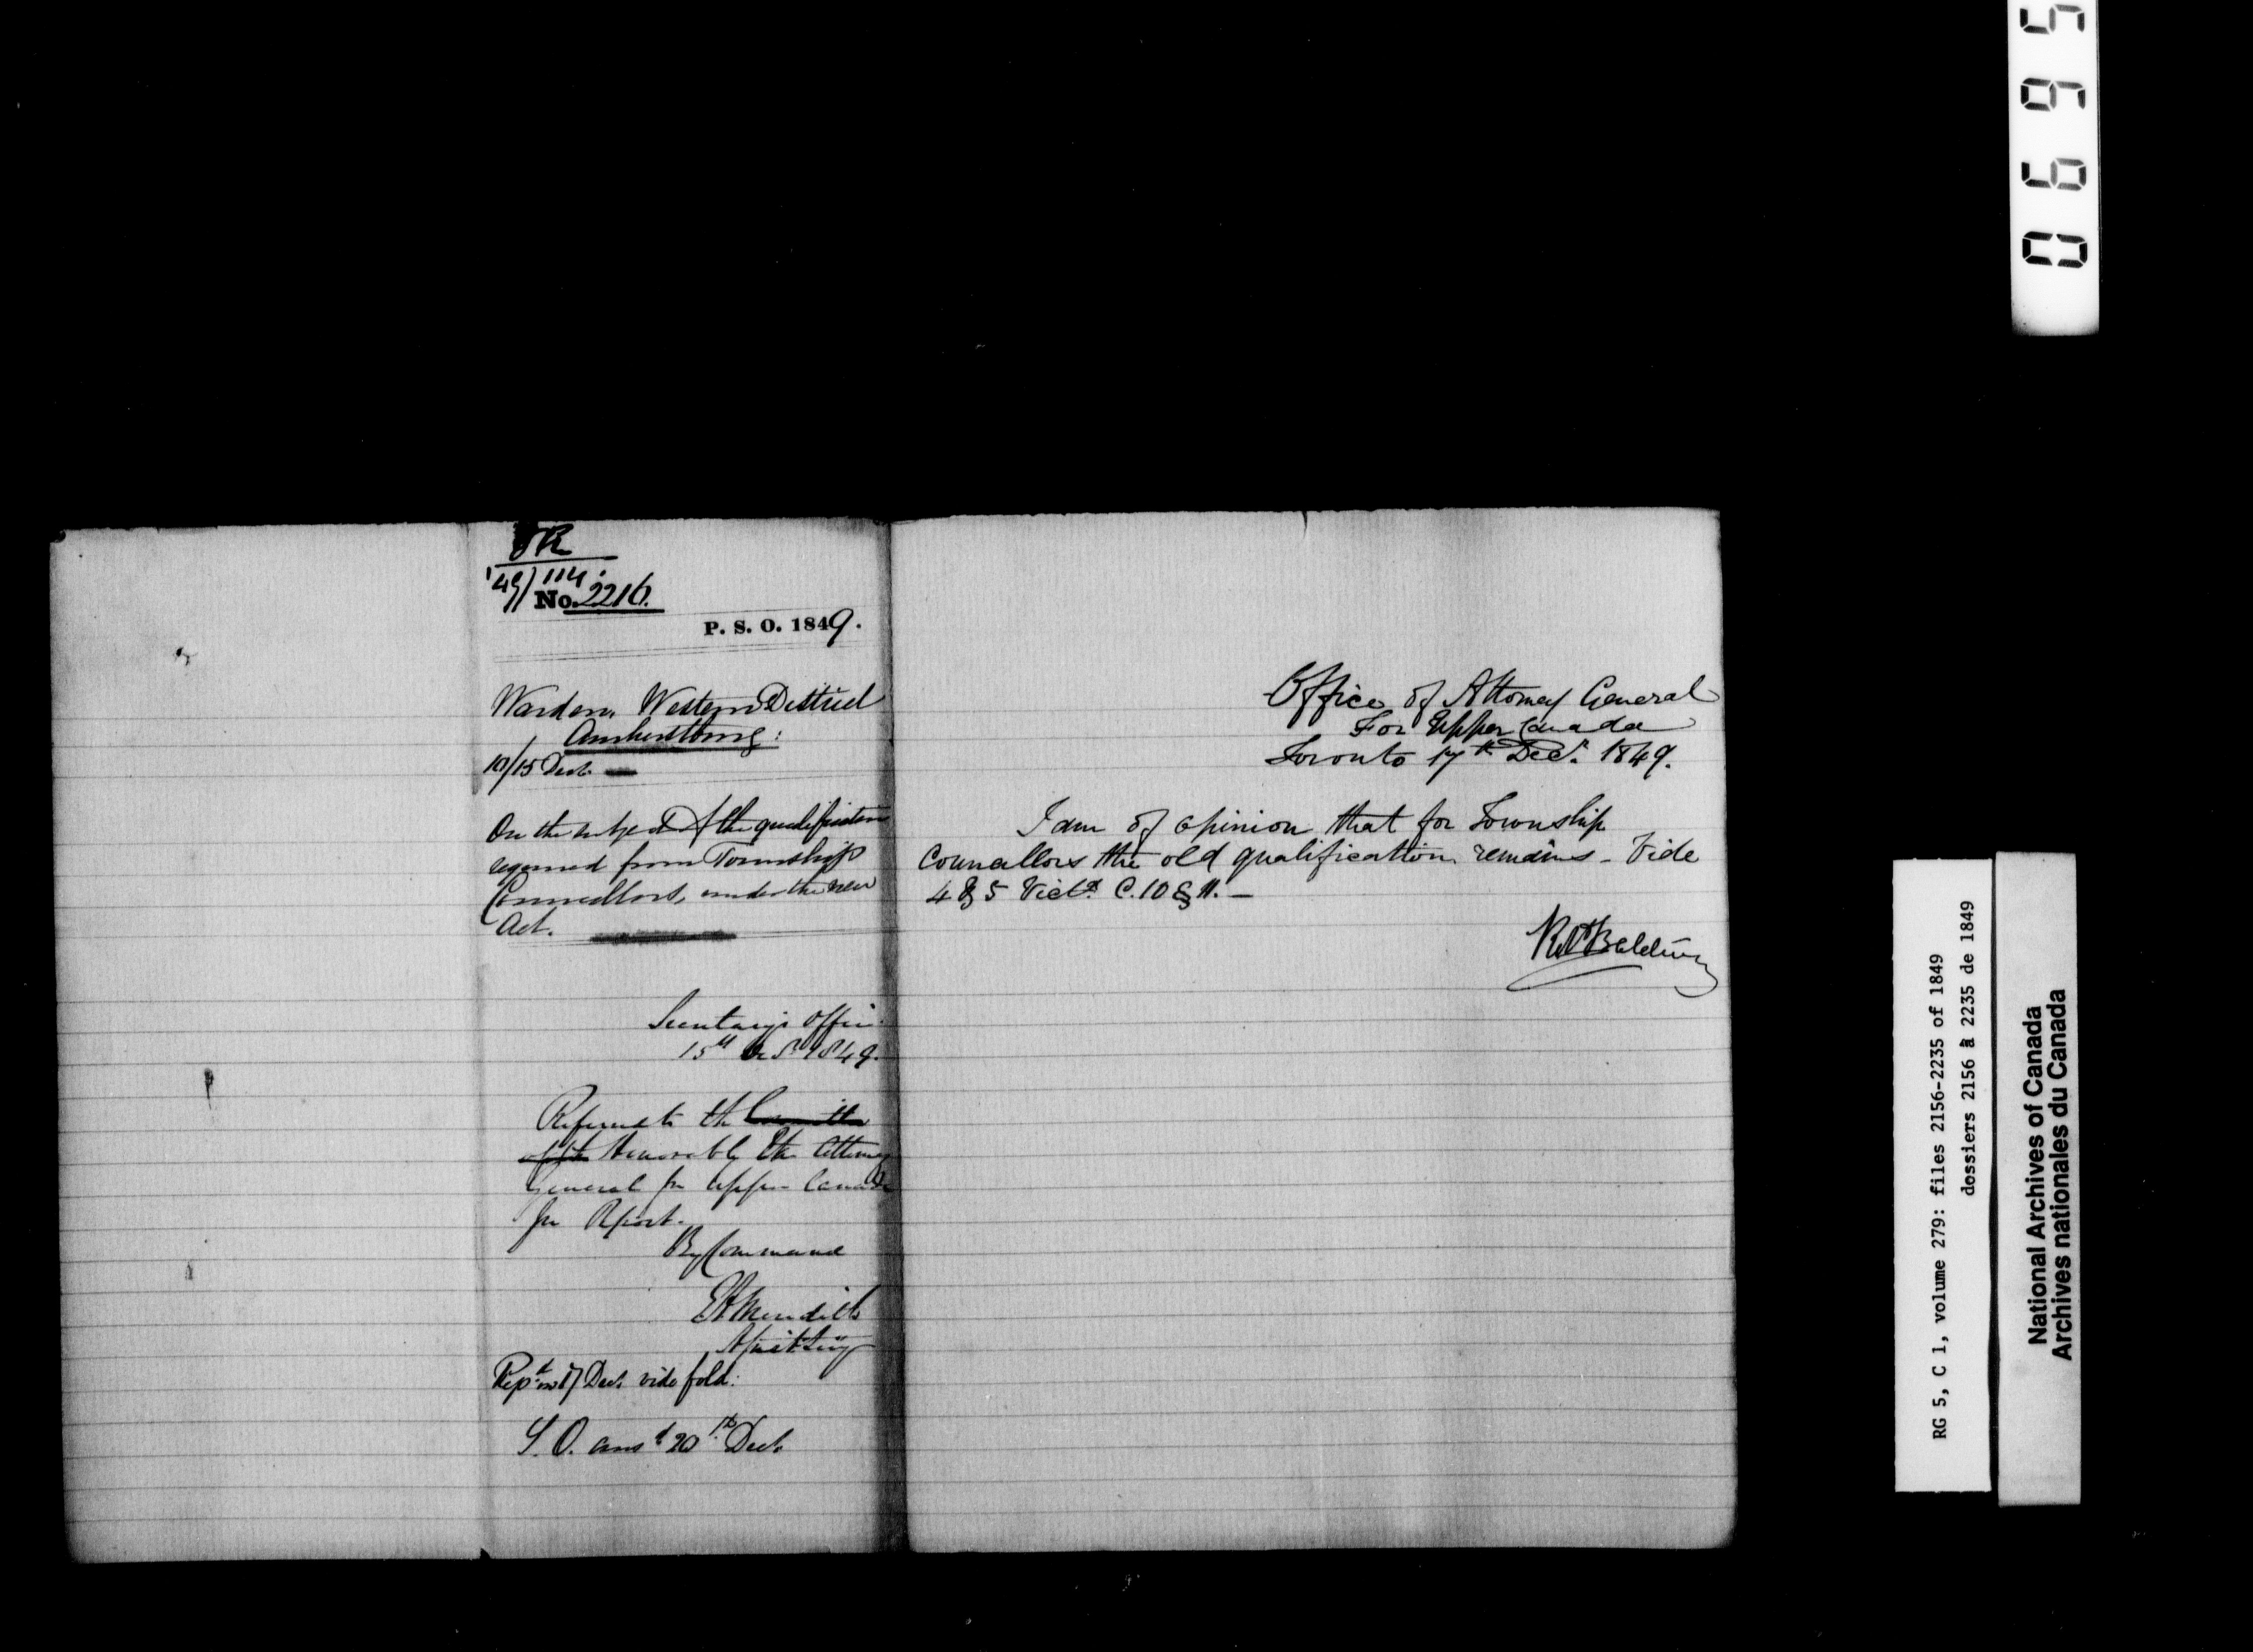 '49/114.
No. 2216.
P. S. O. 1849.
Warden, Western District
Amherstburg:
10/15 Decr.
On the subject of the qualification
required from Township
Councillors, under the new
Act.
Secretary's Office
15th Decr 1849.
Referred to the Committee
of the Honorable the Attorney
General for Upper Canada
for Report.
By Command
E A Meredith
Assist Secy
Repd on 17 Decr. vide fold:
S. O. ansd 20th Decr.
Office of Attorney General
For Upper Canada
Toronto 17th Decr. 1849.
I am of opinion that for Township
Councellors the old qualification remains - Vide
4 & 5 Victa. C. 10 § 11. -
Robt Baldwin
0695
RG 5, C 1, volume 279: files 2156-2235 of 1849
dossiers 2156 à 2235 de 1849
National Archives of Canada
Archives nationales du Canada